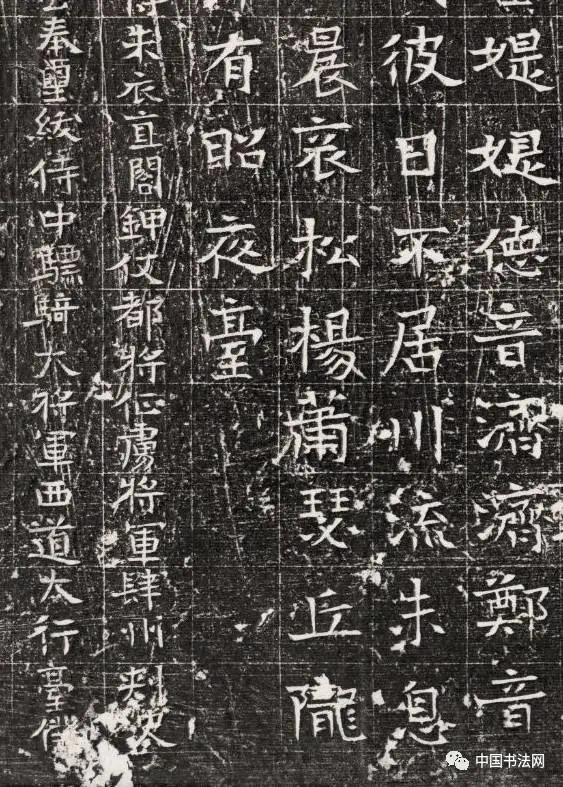 媞媞德音濟濟鄭音
彼日不居川流未息
晨哀松楊蕭瑟丘隴
有昭夜臺
朱衣直閤鉀仗都將征虜將軍肆州刺史
奉璽紱侍中驃騎大將軍西道大行臺僕
中国书法网